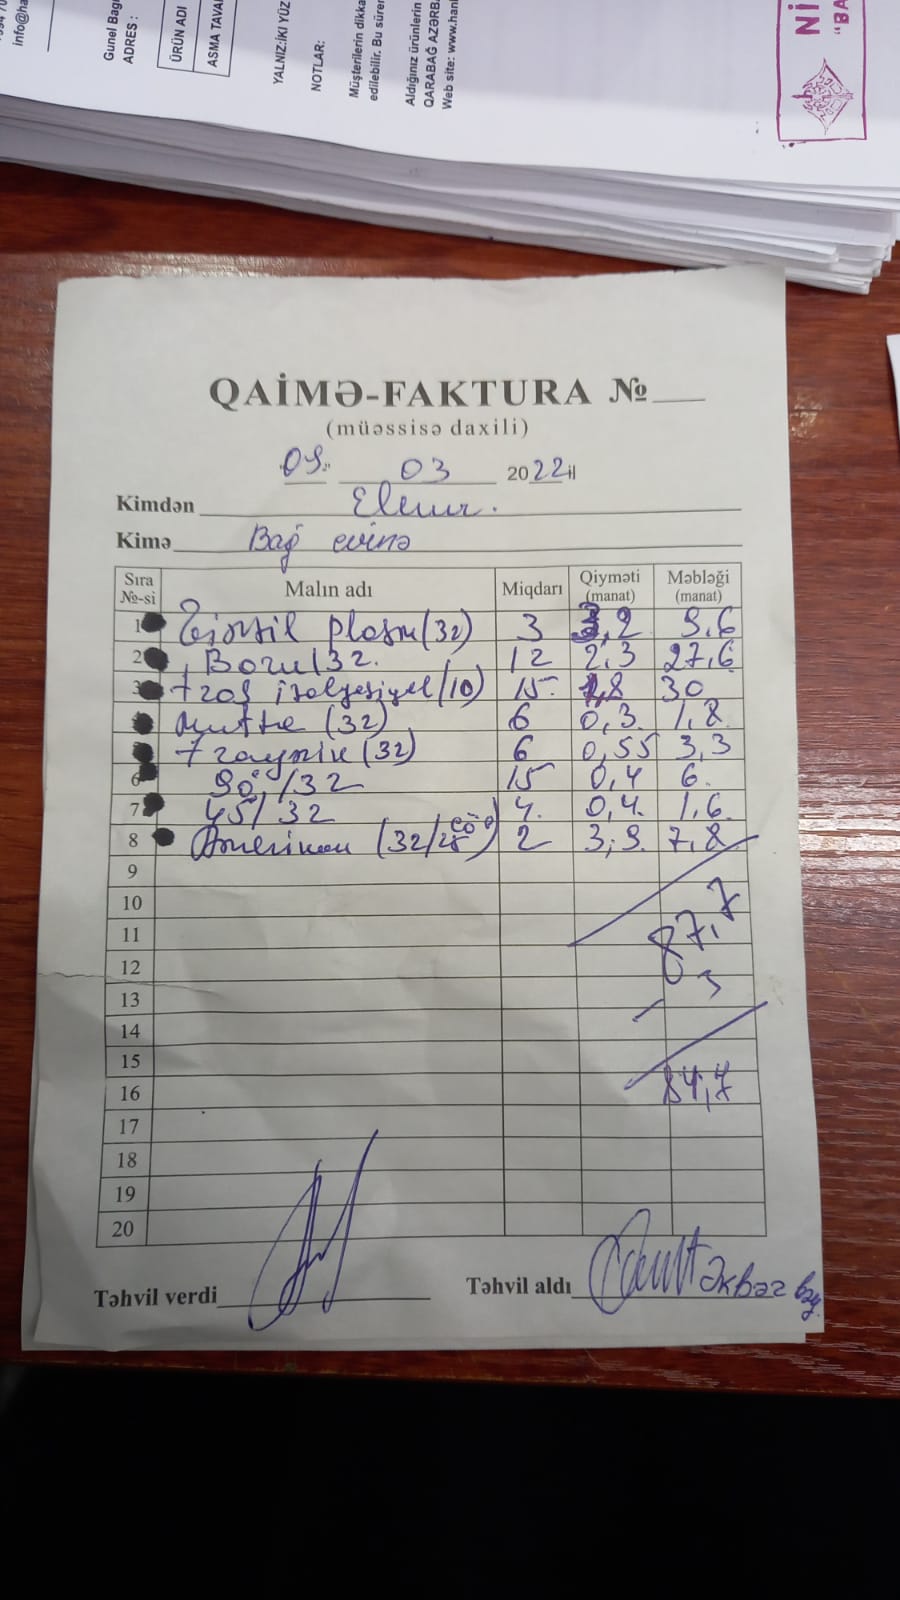 info@ha
Gunel Bag
ADRES :
ÜRÜN ADI
ASMA TAVA
YALNIZ:İKİ YÜZ
NOTLAR:
Müşterilerin dikka
edilebilir. Bu sürer
Aldığınız ürünlerin
QARABAĞ AZƏRB
Web site: www.hanl
Nİ
"BA
QAİMƏ-FAKTURA №
(müəssisə daxili)
09. 03 2022 il
Kimdən Elnur.
Kimə Bağ evinə
Sıra №-si Malın adı Miqdarı Qiyməti (manat) Məbləği (manat)
1 plasm (32) 3 3,2 9,6
2 Boru/32. 12 2,3 27,6
3 (10) 15. 30
Mufta (32) 6 0,3. 1,8
Traynik (32) 6 0,55 3,3
6 90°/32 15 0,4 6.
7 45/32 4. 0,4. 1,6
8 Amerikan (32/25 çöl) 2 3,9. 7,8
9
10
11 87,7
12
13 - 3
14
15
16 84,7
17
18
19
20
Təhvil verdi
Təhvil aldı Əkbər bəy.